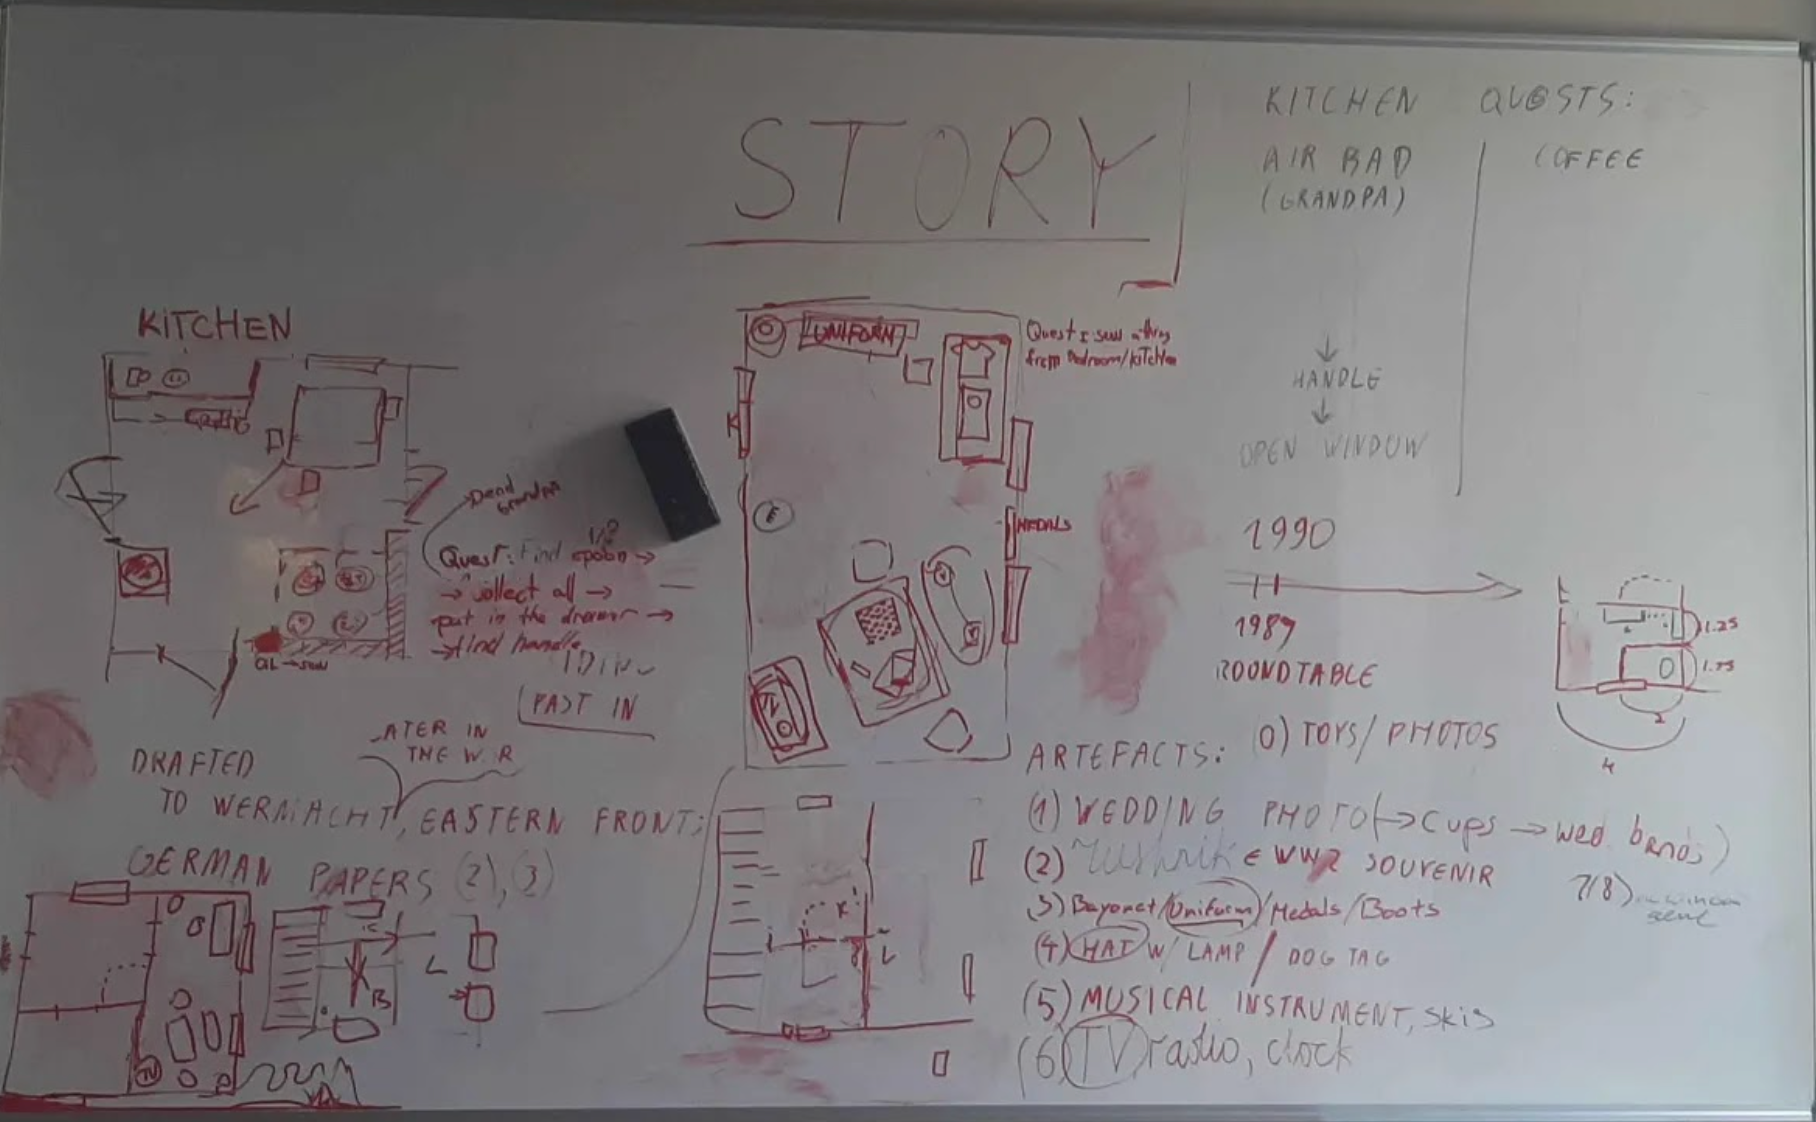 STORY
KITCHEN QUESTS:
AIR BAD
(GRANDPA)
COFFEE
HANDLE
OPEN WINDOW
KITCHEN
Dead
Grandpa
1/2?
Quest: Find spoon →
→ collect all →
put in the drawer →
→ find handle
OIL → 
PAST IN
UNIFORM
Quest I: 
from bedroom/kitchen
MEDALS
TV
1990
1989
ROUNDTABLE
1.25
1.75
2
4
ATER IN
THE W R
DRAFTED
TO WERMACHT, EASTERN FRONT;
GERMAN PAPERS (2), (3)
K
L
B
TV
K
L
ARTEFACTS: 0) TOYS/PHOTOS
(1) WEDDING PHOTO (→ Cups → wed. bands)
(2) Rushnik ∈ WW2 SOUVENIR
3) Bayonet/Uniform/Medals/Boots
7(8)
(4) HAT W/ LAMP / DOG TAG
(5) MUSICAL INSTRUMENT, SKIS
(6) TV radio, clock